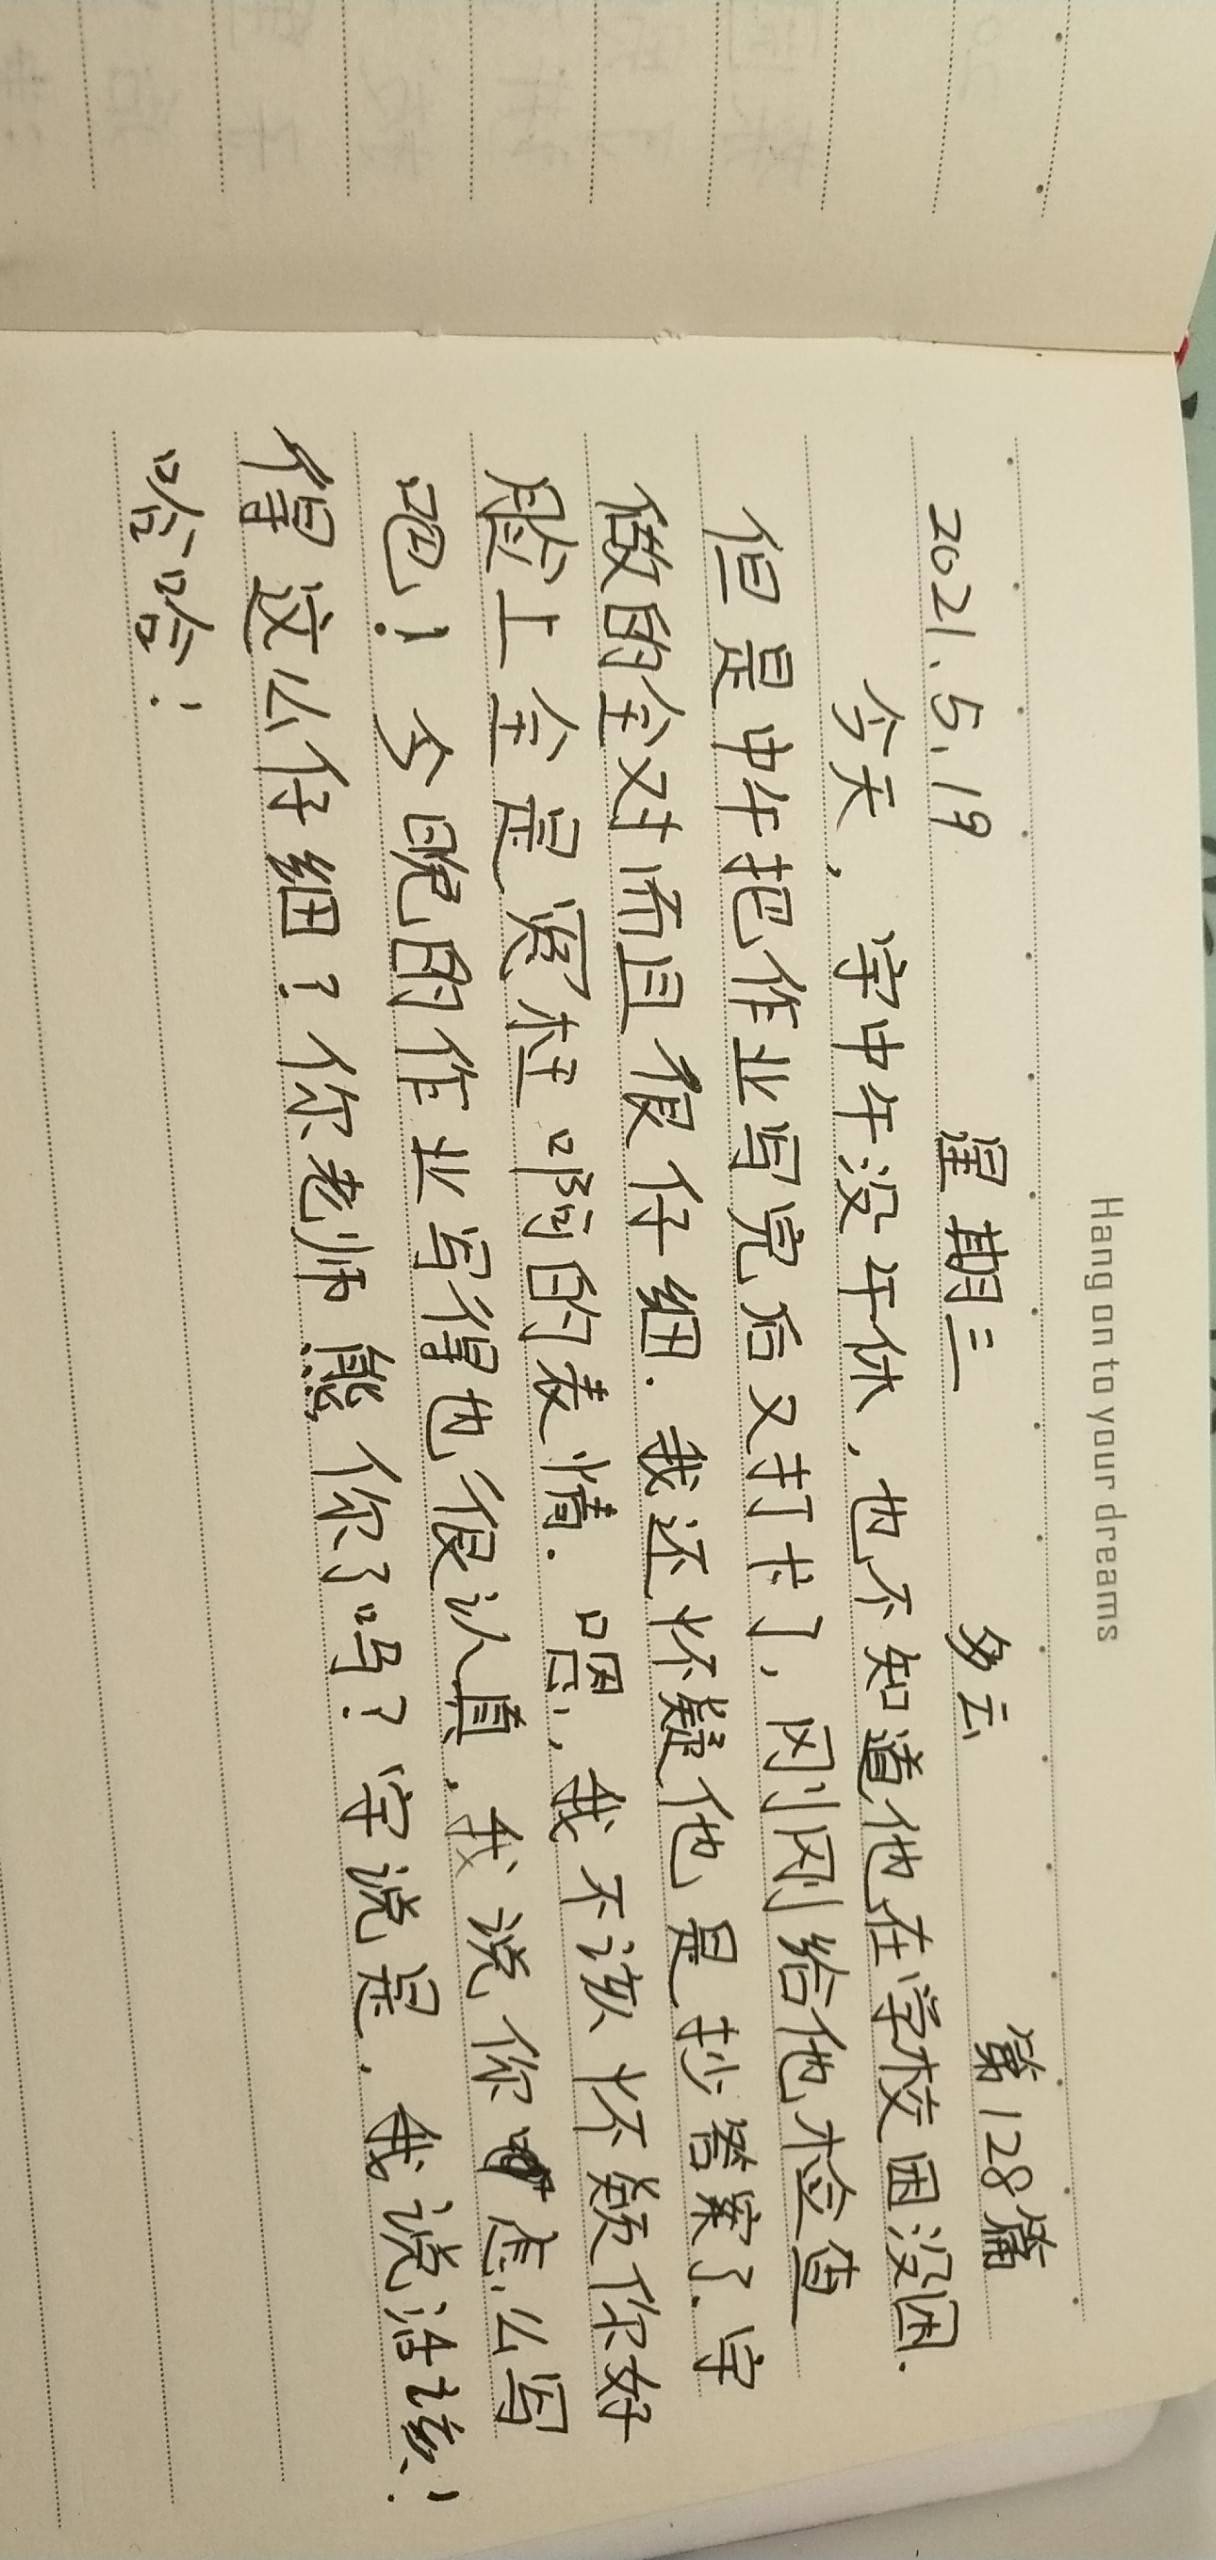 Hang on to your dreams
2021、5、19 星期三 多云 第128篇
今天，宇中午没午休，也不知道他在学校困没困.
但是中午把作业写完后又打卡了，刚刚给他检查
做的全对而且很仔细.我还怀疑他是抄答案了.宇
脸上全是冤枉啊的表情.嗯，我不该怀疑你好
吧！今晚的作业写得也很认真.我说你怎么写
得这么仔细？你老师熊你了吗？宇说是.我说活该！
哈哈！